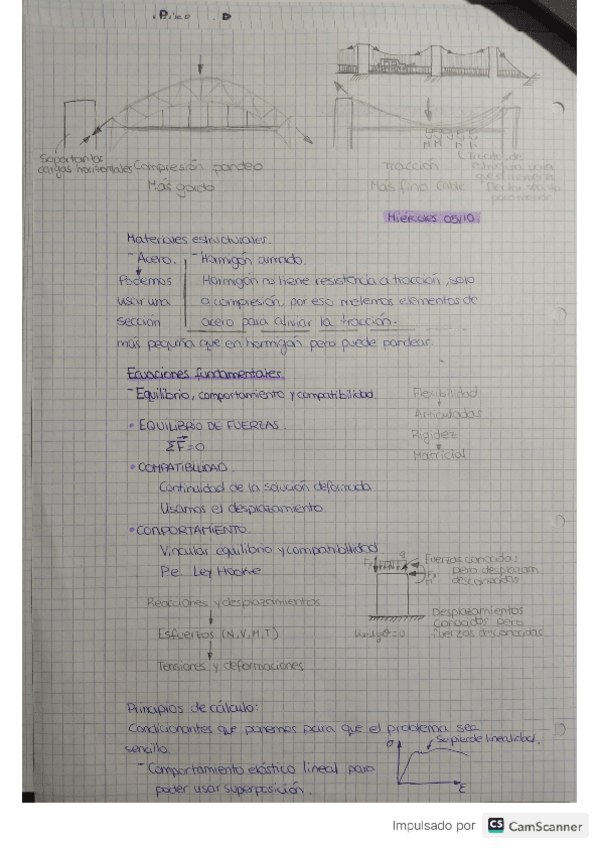 Soportan las
cargas horizontales
Compresión pandeo
Más gordo
Tracción
Más fino cable
Miércoles 05/10
Materiales estructurales.
- Acero.
- Hormigón armado.
Podemos
usar una
sección
Hormigón no tiene resistencia a tracción, solo
a compresión, por eso metemos elementos de
acero para aliviar la tracción.
más pequeña que en hormigón pero puede pandear.
Ecuaciones fundamentales.
- Equilibrio, comportamiento y compatibilidad.
Flexibilidad
Articuladas
Rigidez
Matricial
• EQUILIBRIO DE FUERZAS.
ΣF=0
• COMPATIBILIDAD.
Continuidad de la solución deformada.
Usamos el desplazamiento.
• COMPORTAMIENTO.
Vincular equilibrio y compatibilidad.
P.e. Ley Hooke
q
Fuerzas conocidas
pero desplazam
desconocidos
Reacciones y desplazamientos
Esfuerzos (N,V,M,T)
Tensiones y deformaciones
Desplazamientos
conocidos pero
fuerzas desconocidas.
Principios de cálculo:
Condicionantes que ponemos para que el problema sea
sencillo.
- Comportamiento elástico lineal para
poder usar superposición.
Se pierde linealidad.
σ
ε
Impulsado por CS CamScanner